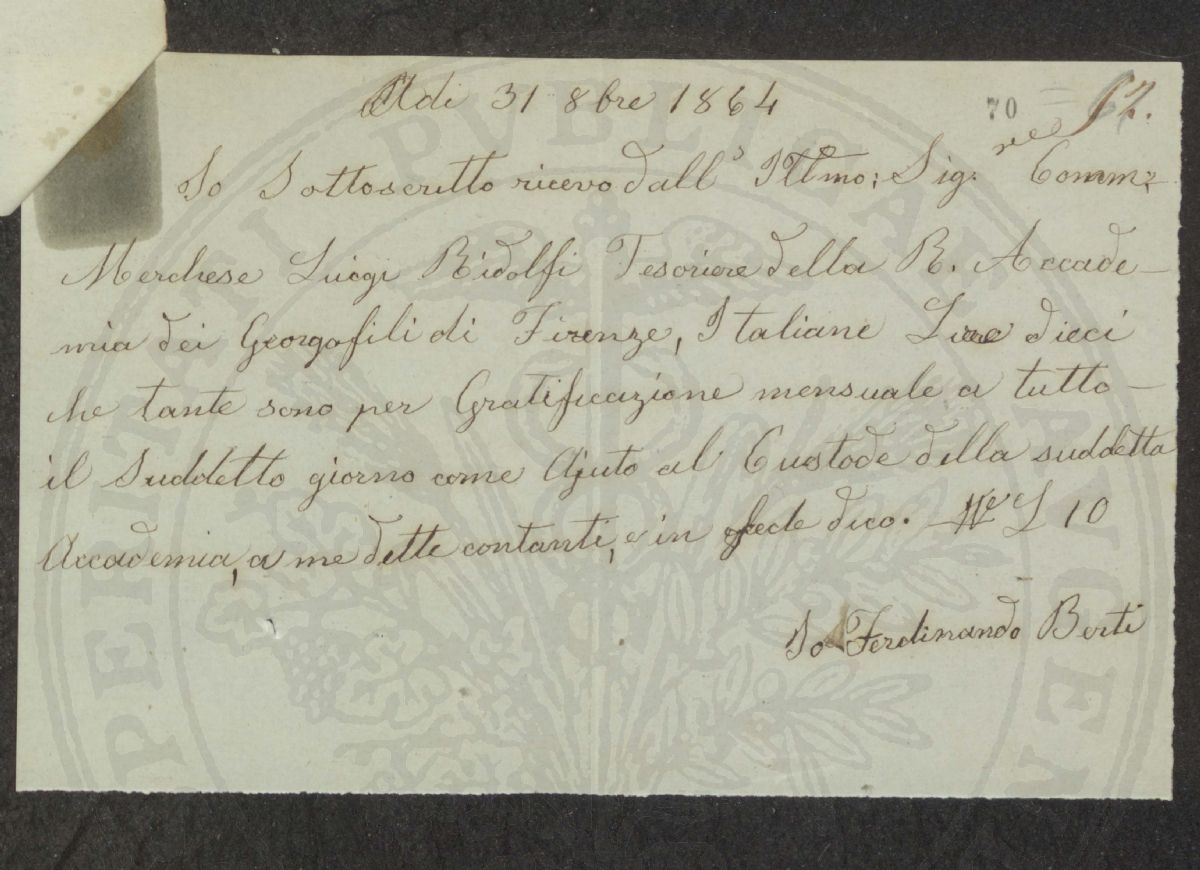 Adi 31 8bre 1864
70 = 17.
Io Sottoscritto ricevo dall' Illmo: Sig:re Comm:
Merchese Luigi Ridolfi Tesoriere della R. Accade-
mia dei Georgofili di Firenze, Italiane Lire dieci
che tante sono per Gratificazione mensuale a tutto-
il Suddetto giorno come Ajuto al Custode della suddetta
Accademia, a me dette contanti, e in fede dico. L 10
Io Ferdinando Berti
PERITATI PUBLICAE AUGEN